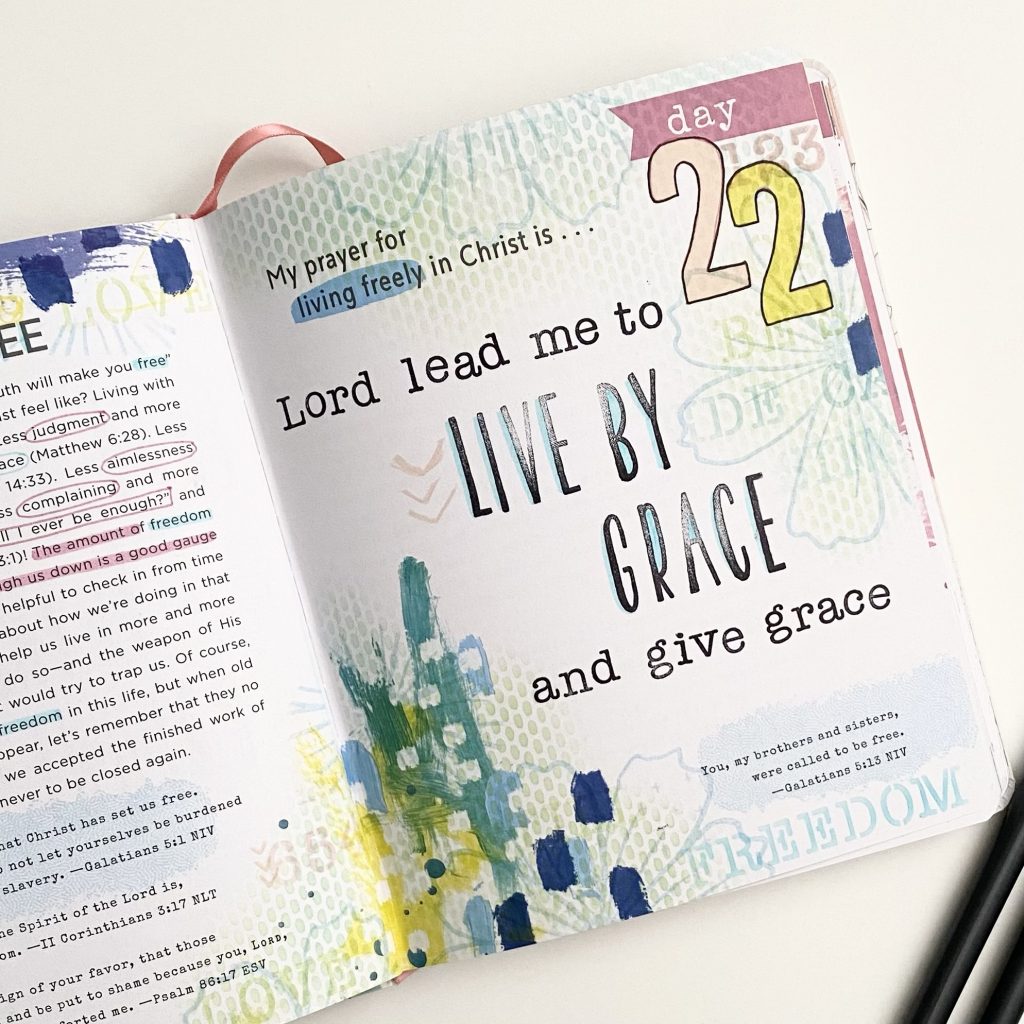 LOVE
EE
uth will make you free"
st feel like? Living with
ess judgment and more
ace (Matthew 6:28). Less
14:33). Less aimlessness
ss complaining and more
ll I ever be enough?" and
3:1)! The amount of freedom
ugh us down is a good gauge
helpful to check in from time
about how we're doing in that
help us live in more and more
do so—and the weapon of His
t would try to trap us. Of course,
freedom in this life, but when old
ppear, let's remember that they no
we accepted the finished work of
never to be closed again.
hat Christ has set us free.
o not let yourselves be burdened
slavery. —Galatians 5:1 NIV
he Spirit of the Lord is,
om. —II Corinthians 3:17 NLT
ign of your favor, that those
and be put to shame because you, LORD,
forted me. —Psalm 86:17 ESV
LOVE
day
123
22
My prayer for
living freely in Christ is . . .
Lord lead me to
LIVE BY
GRACE
and give grace
You, my brothers and sisters,
were called to be free.
—Galatians 5:13 NIV
FREEDOM